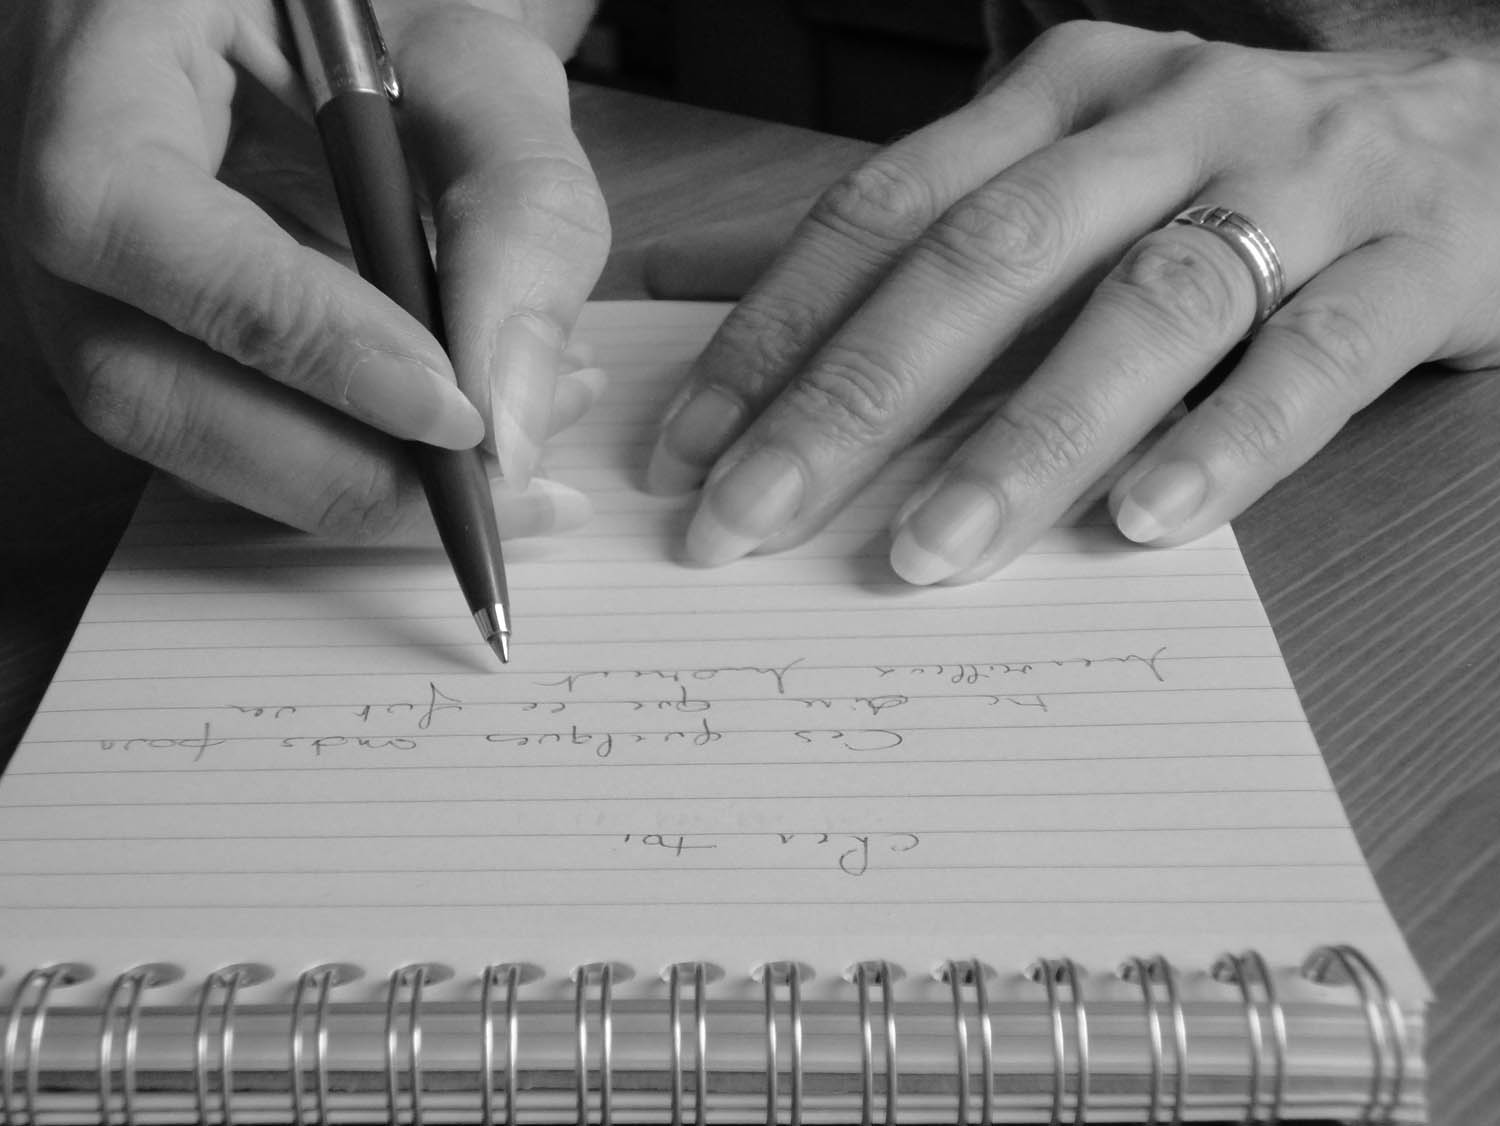 cher toi,
Ces quelques mots pour
te dire que ce fut un
merveilleux moment